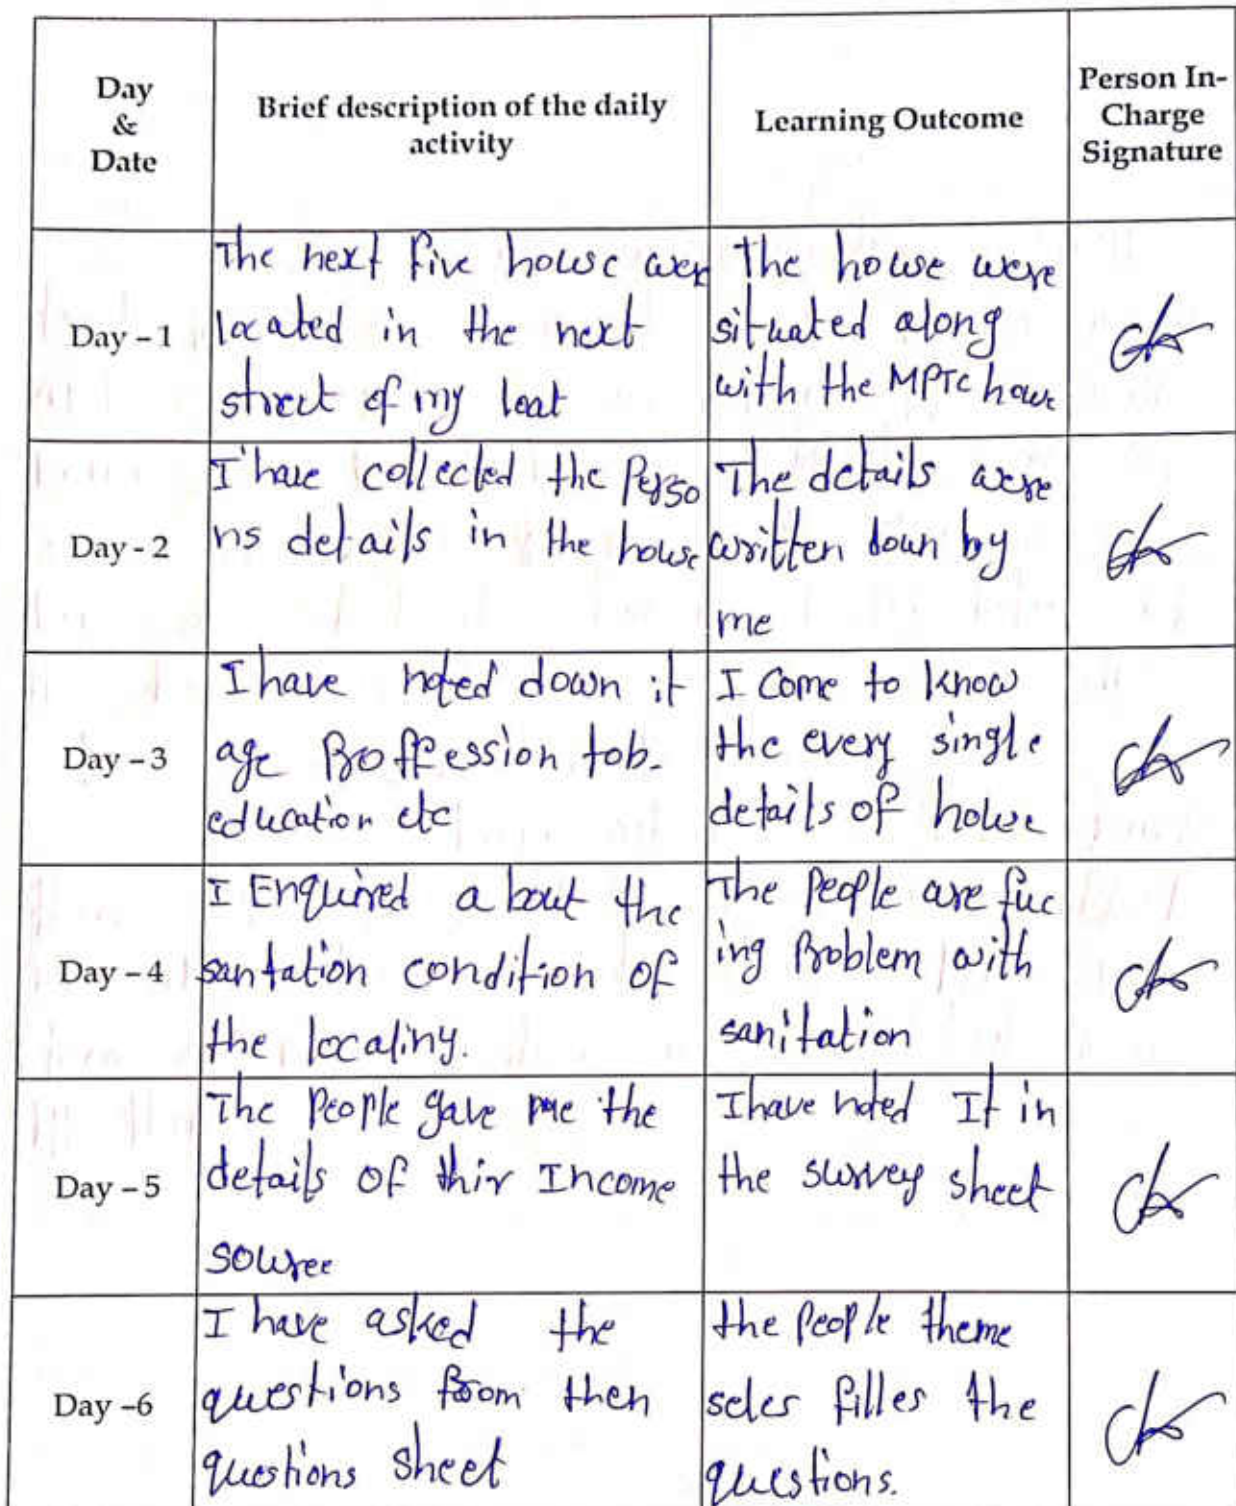 Day
&
Date
Brief description of the daily
activity
Learning Outcome
Person In-
Charge
Signature
Day - 1
The next five house wer
located in the next
street of my
The house were
situated along
with the MPTC house
Day - 2
I have collected the Perso
ns details in the house
The details were
written down by
me
Day - 3
I have noted down it
age Proffession
education etc
I Come to know
the every single
details of house
Day - 4
I Enquired about the
santation condition of
the localiny.
The People are fuc
ing Problem with
sanitation
Day - 5
The People gave me the
details of thir Income
sowree
I have noted It in
the survey sheet
Day -6
I have asked the
questions from then
questions sheet
the People theme
seles filles the
questions.